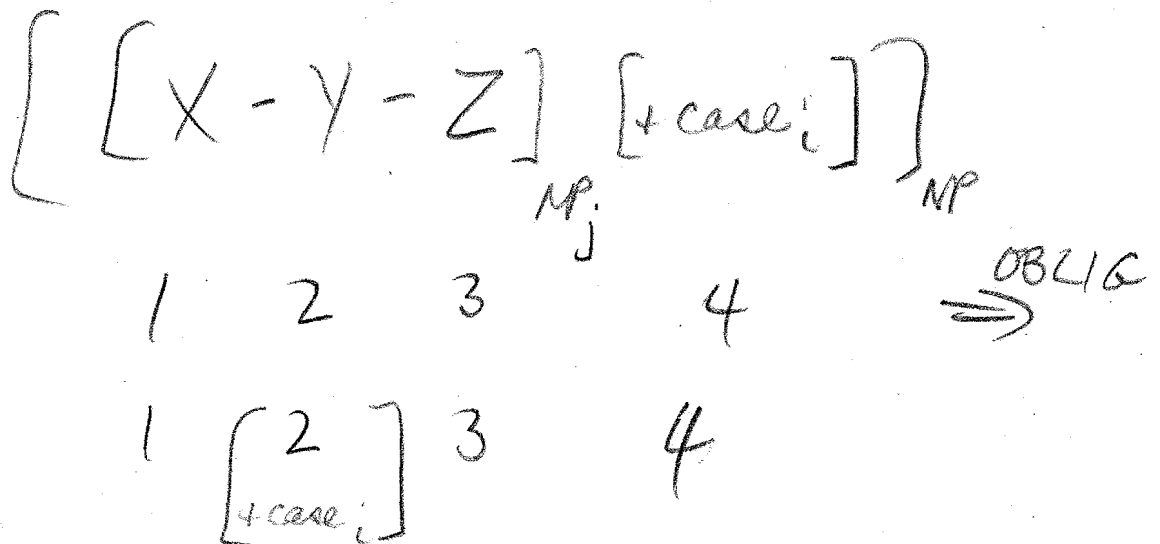 [ [ X - Y - Z ]NPj [+case i] ]NP
1 2 3 4 ⇒ OBLIG
1 [ 2 +case i ] 3 4